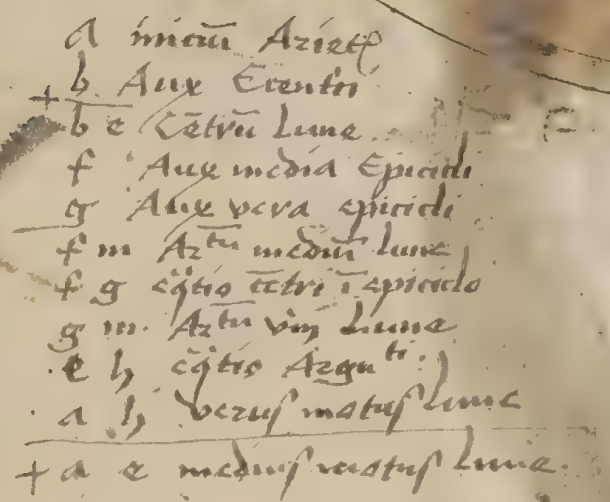 a iniciū Arietꝭ
+ b Aux Ecentri
b e Cētrū Lune
f Aux media Epicicli
g Aux vera epicicli
f m Ar^tū mediū lune
f g eq̄tio cētri ī epiciclo
g m. Ar^tū vm̄ Lune
e h eq̄tio Argu^ti.
a h verus motus Lune
+ a e medius motus Lune.